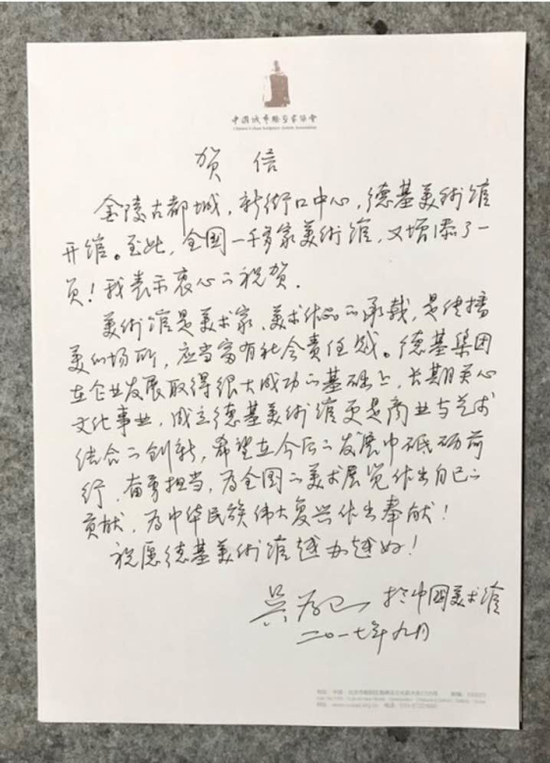 中国城市雕塑家协会
贺信
金陵古都城，新街口中心，德基美術馆
开馆。至此，全国一千多家美術馆，又增添了一
员！我表示衷心的祝贺．
美術馆是美术家、美术作品的承载，是传播
美的场所，应当富有社会责任感。德基集团
在企业发展取得很大成功的基础上，长期关心
文化事业，成立德基美術馆更是商业与艺术
结合的创新，希望在今后的发展中砥砺前
行，奋勇担当，为全国的美术展览作出自己的
贡献，为中华民族伟大复兴作出奉献！
祝愿德基美術馆越办越好！
吴为山 于中国美术馆
二〇一七年九月